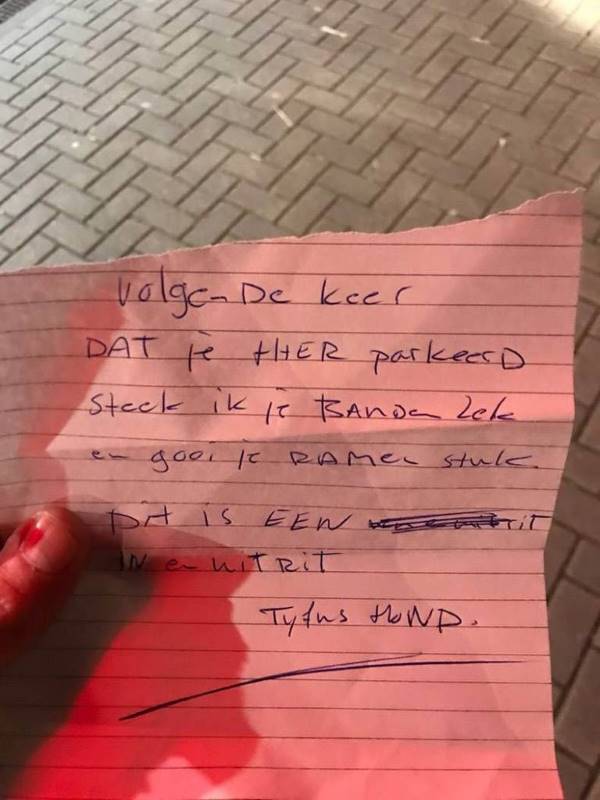 Volgende keer
DAT je HIER parkeerD
Steek ik je BANDen lek
en gooi je RAMen stuk.
Dit is EEN
IN en uitRit
Tyfus HOND.